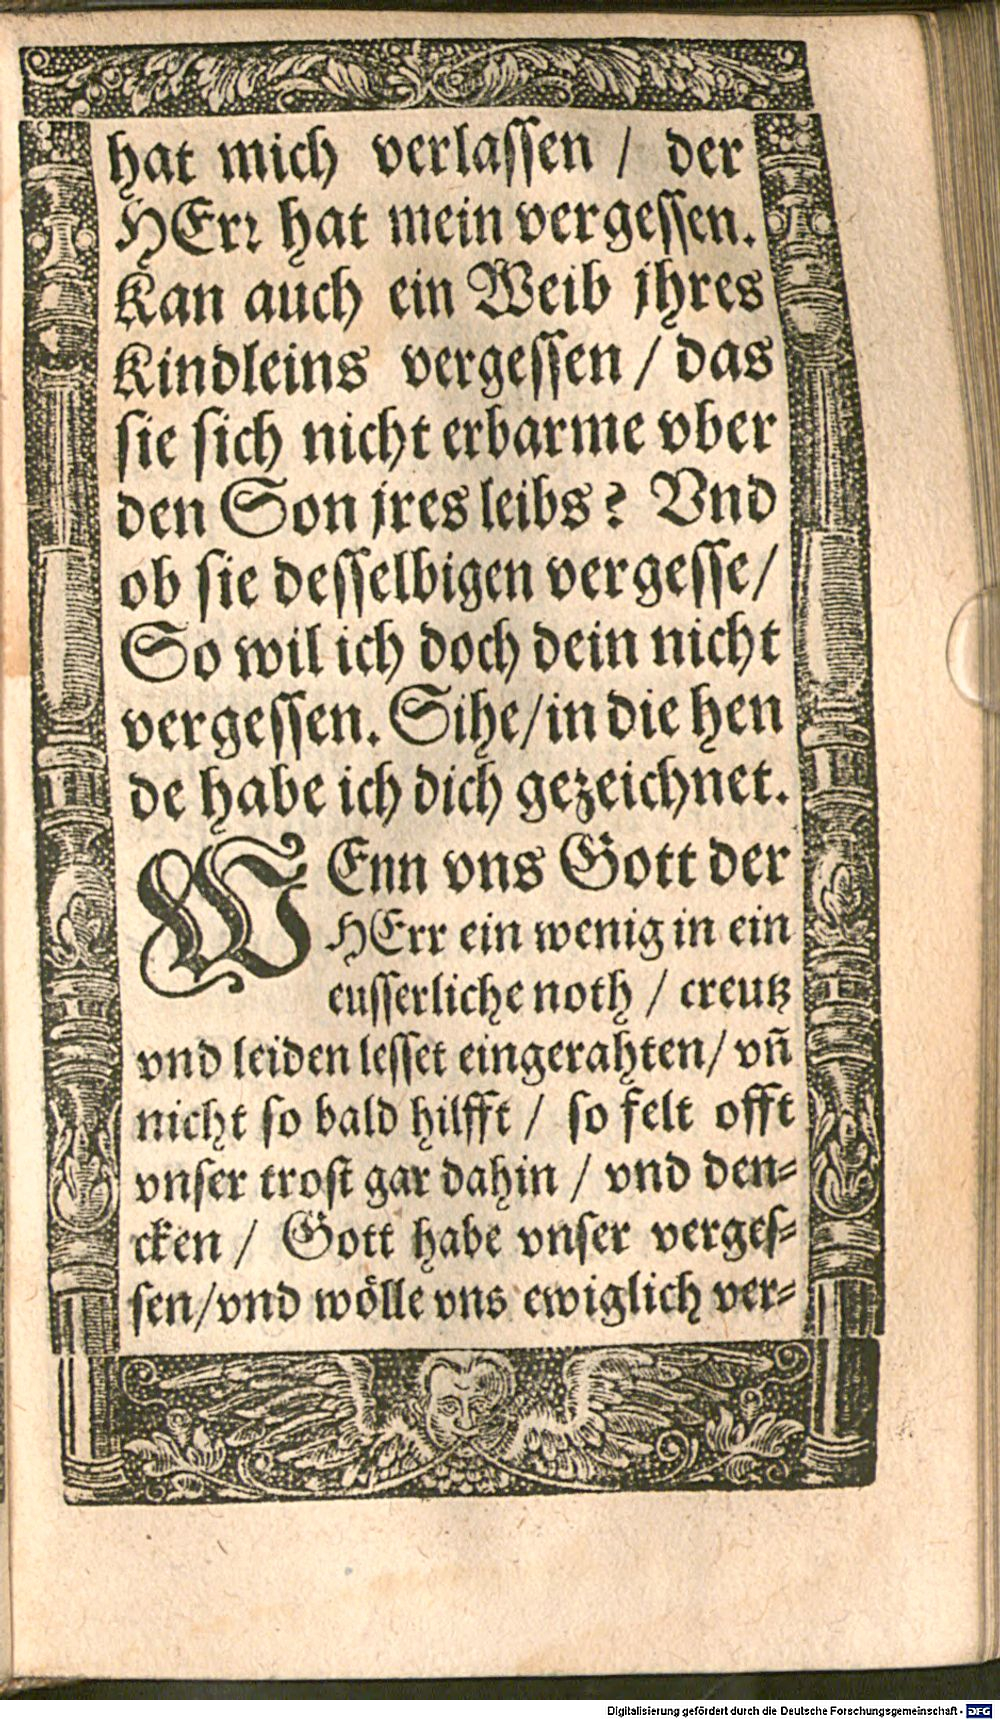 hat mich verlassen / der
HErr hat mein vergessen.
Kan auch ein Weib jhres
Kindleins vergessen / das
sie sich nicht erbarme vber
den Son jres leibs? Vnd
ob sie desselbigen vergesse/
So wil ich doch dein nicht
vergessen. Sihe/in die hen
de habe ich dich gezeichnet.
WEnn vns Gott der
HErr ein wenig in ein
eusserliche noth / creutz
vnd leiden lesset eingerahten/ vñ
nicht so bald hilfft / so felt offt
vnser trost gar dahin / vnd den-
cken / Gott habe vnser verges-
sen/vnd wölle vns ewiglich ver-
Digitalisierung gefördert durch die Deutsche Forschungsgemeinschaft - DFG